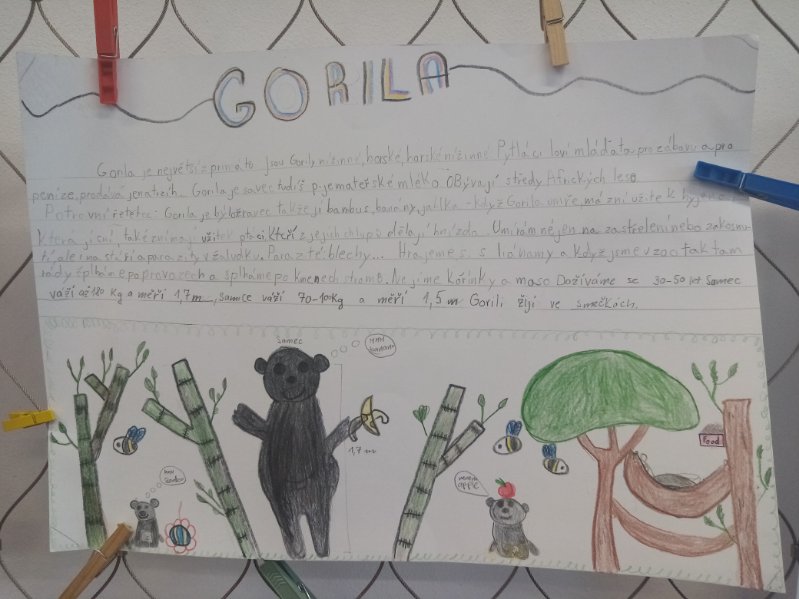 GORILA
Gorila je největší z primátů jsou Gorily nížinné, horské, horské nížinné. Pytláci loví mláďata pro zábavu a pro
peníze, prodává je na trzích. Gorila je savec tudíš pije mateřské mléko. Obývají středy Afrických lesů
Potravní řetetec: Gorila je býložravec takže jí bambus, banány, jablka - když Gorila umře, má z ní užitek
která jí sní, také z ní mají užitek ptáci, kteří z jejich chlupů dělají hnízda. Umírám nejen na zastřelení nebo
ale i na stáří a parazity v žaludku. Parazité: blechy... Hrajeme si s liánamy a když jsme v zoo tak tam
rády šplháme po provazech a šplháme po kmenech stromů. Ne jíme kořínky a maso Dožíváme se 30-50 let Samec
váží až 180 Kg a měří 1,7m, samice váží 70-100kg a měří 1,5m Gorili žijí ve smečkách.
samec
mňm
1,7 m
mňm
apple
Food